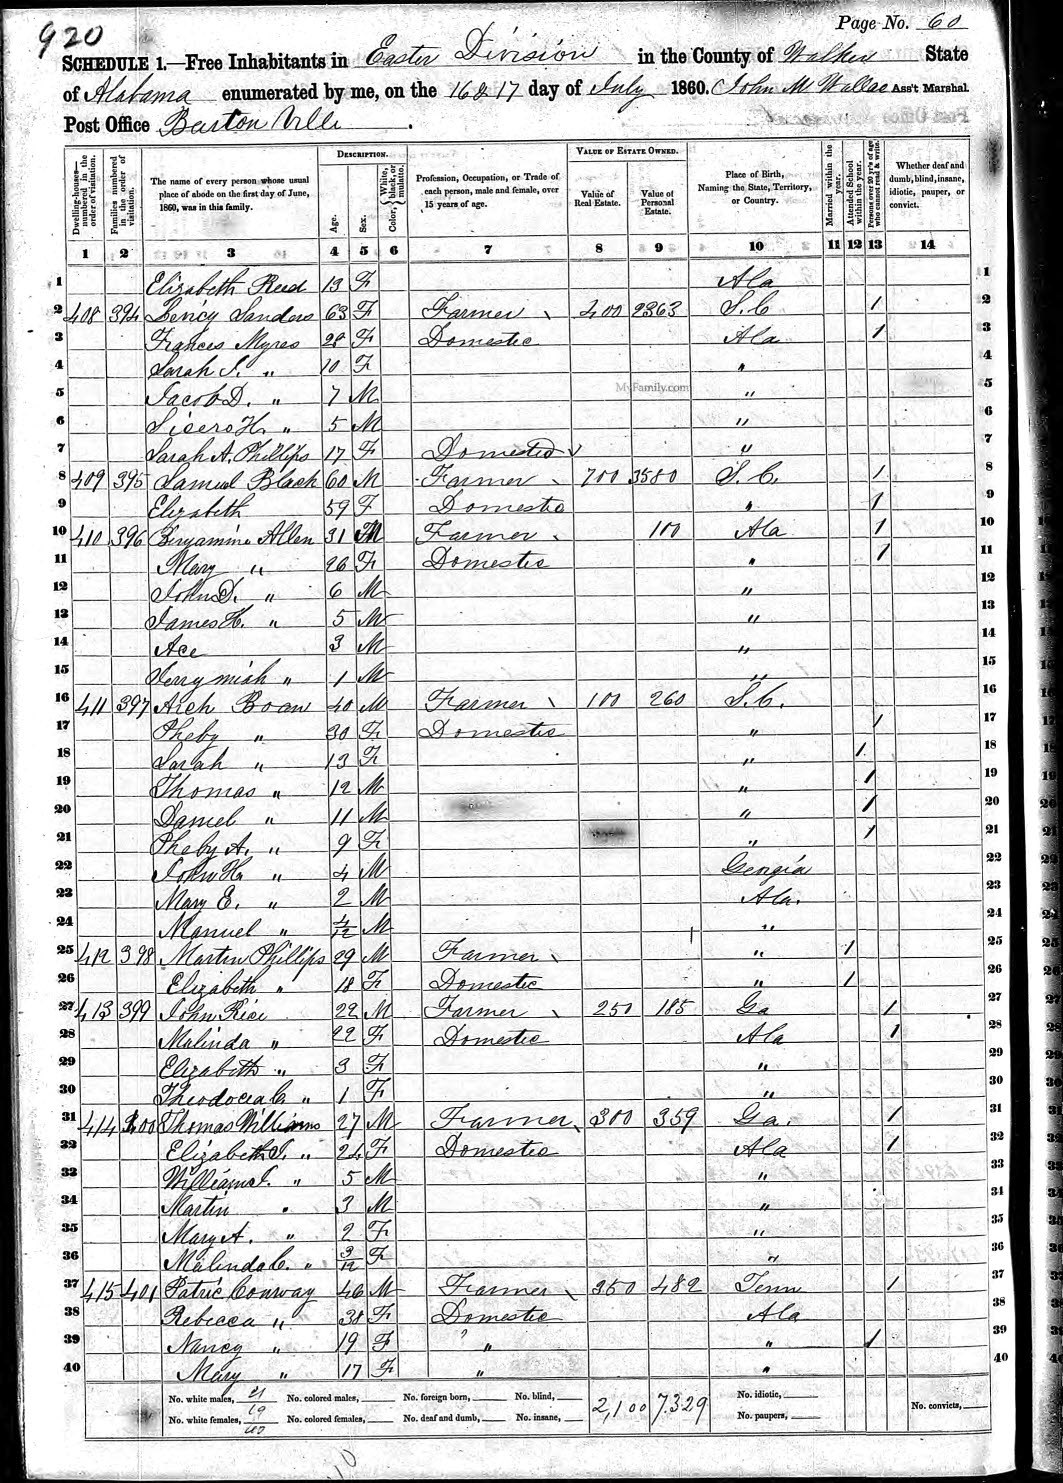 920
Page No. 60
SCHEDULE 1.—Free Inhabitants in Easter Division in the County of Walker State
of Alabama enumerated by me, on the 16 & 17 day of July 1860. John M Wallac Ass't Marshal.
Post Office Barton Ville.
Dwelling-houses—numbered in the order of visitation.
Families numbered in the order of visitation.
The name of every person whose usual place of abode on the first day of June, 1860, was in this family.
DESCRIPTION.
Age.
Sex.
Color, White, black, or mulatto.
Profession, Occupation, or Trade of each person, male and female, over 15 years of age.
VALUE OF ESTATE OWNED.
Value of Real Estate.
Value of Personal Estate.
Place of Birth, Naming the State, Territory, or Country.
Married within the year.
Attended School within the year.
Persons over 20 y'rs of age who cannot read & write.
Whether deaf and dumb, blind, insane, idiotic, pauper, or convict.
1 2 3 4 5 6 7 8 9 10 11 12 13 14
1 Elizabeth Reed 13 F Ala 1
2 408 394 Levicy Sanders 63 F Farmer 400 2363 S.C / 2
3 Frances Myres 28 F Domestic Ala / 3
4 Sarah J. " 10 F " 4
5 Jacob D. " 7 M " 5
MyFamily.com
6 Sisero H. " 5 M " 6
7 Sarah A. Phillips 17 F Domestic " 7
8 409 395 Samuel Black 60 M Farmer 700 3580 S.C. / 8
9 Elizabeth 59 F Domestic " / 9
10 410 396 Binyamine Allen 31 M Farmer 100 Ala / 10
11 Mary " 26 F Domestic " / 11
12 John D. " 6 M " 12
13 James H. " 5 M " 13
14 Ace 3 M " 14
15 Jerrymiah " 1 M " 15
16 411 397 Arch Boan 40 M Farmer 100 260 S.C. 16
17 Pheby " 30 F Domestic " / 17
18 Sarah " 13 F " / 18
19 Thomas " 12 M " / 19
20 Daniel " 11 M " / 20
21 Pheby A. " 9 F " / 21
22 John H. " 4 M Georgia 22
23 Mary E. " 2 M Ala. 23
24 Manuel " 4/12 M " 24
25 412 398 Martin Phillips 29 M Farmer " / 25
26 Elizabeth " 18 F Domestic " / 26
27 413 399 John Rice 22 M Farmer 250 185 Ga / 27
28 Malinda " 22 F Domestic Ala / 28
29 Elizabeth " 3 F " 29
30 Theodocia C. " 1 F " 30
31 414 400 Thomas Williams 27 M Farmer 300 359 Ga. / 31
32 Elizabeth J. " 24 F Domestic Ala / 32
33 William J. " 5 M " 33
34 Martin " 3 M " 34
35 Mary A. " 2 F " 35
36 Malinda C. " 3/12 F " 36
37 415 401 Patric Conway 46 M Farmer 350 482 Tenn / 37
38 Rebecca " 38 F Domestic Ala 38
39 Nancy " 19 F " " / 39
40 Mary " 17 F " " 40
No. white males, 21 No. colored males, No. foreign born, No. blind, 2,100 7,329 No. idiotic,
No. white females, 19 No. colored females, No. deaf and dumb, No. insane, No. paupers, No. convicts,
40
10